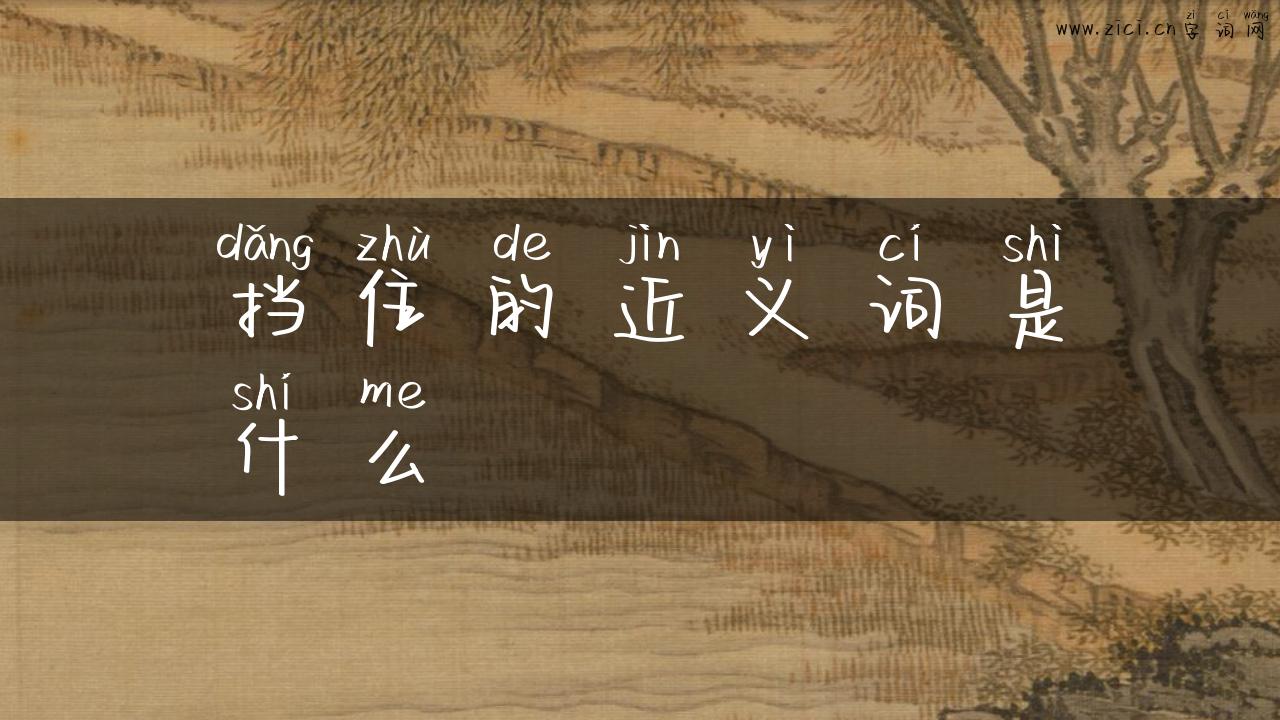 zì cí wǎng
www.zici.cn字词网
dǎng zhù de jìn yì cí shì
挡住的近义词是
shí me
什么